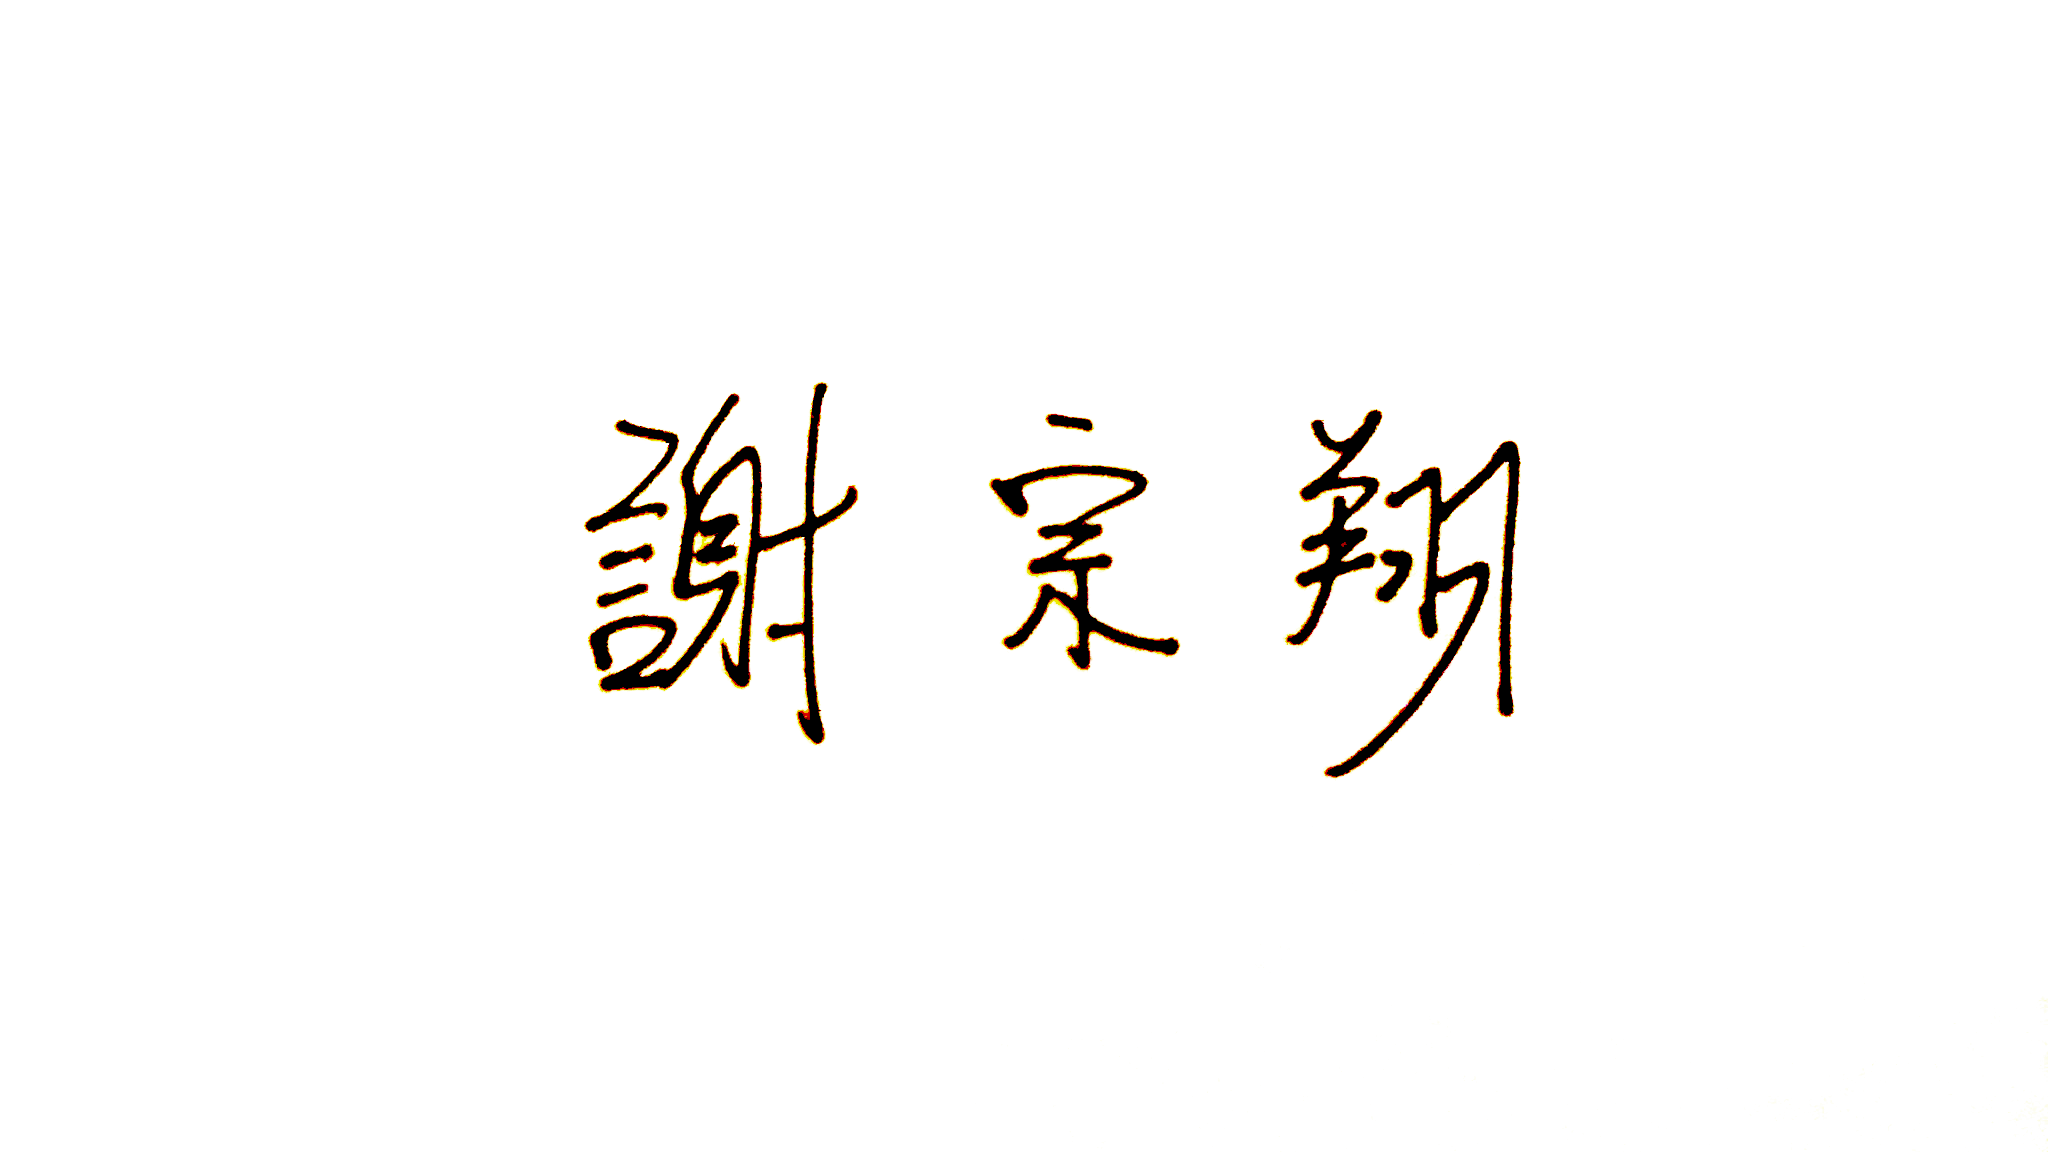 謝宗翔